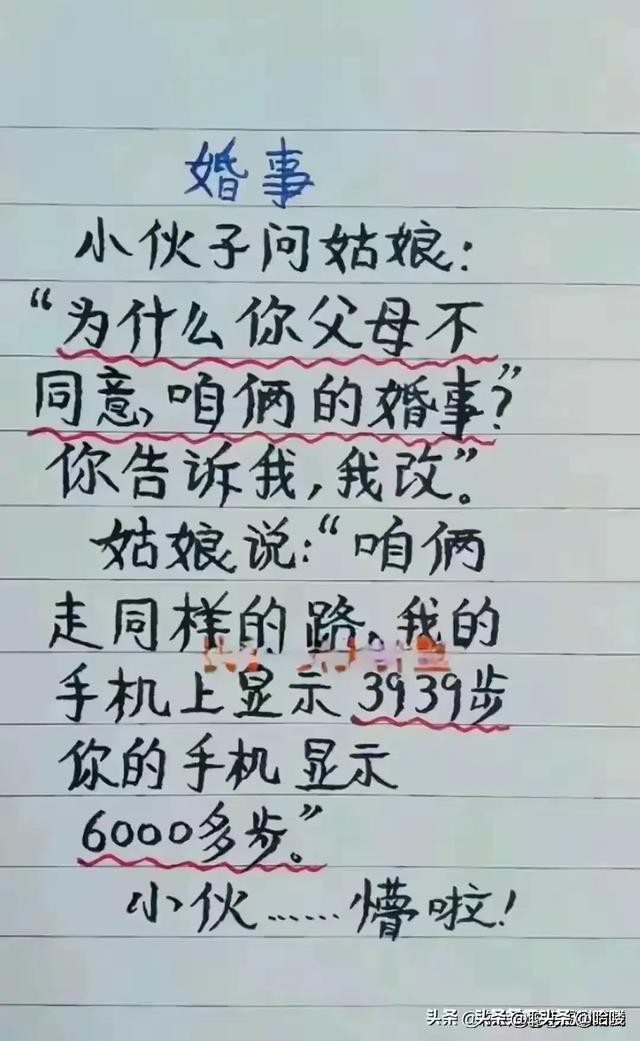 婚事
小伙子问姑娘：
“为什么你父母不
同意，咱俩的婚事？”
你告诉我，我改”。
姑娘说：“咱俩
走同样的路，我的
手机上显示3939步
你的手机显示
6000多步。”
小伙……懵啦！
头条 @